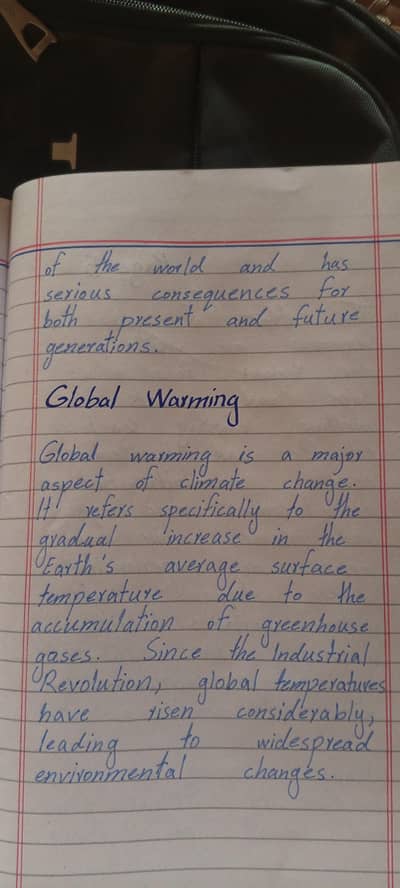 of the world and has
serious consequences for
both present and future
generations.
Global Warming
Global warming is a major
aspect of climate change.
It refers specifically to the
gradual increase in the
Earth's average surface
temperature due to the
accumulation of greenhouse
gases. Since the Industrial
Revolution, global temperatures
have risen considerably,
leading to widespread
environmental changes.